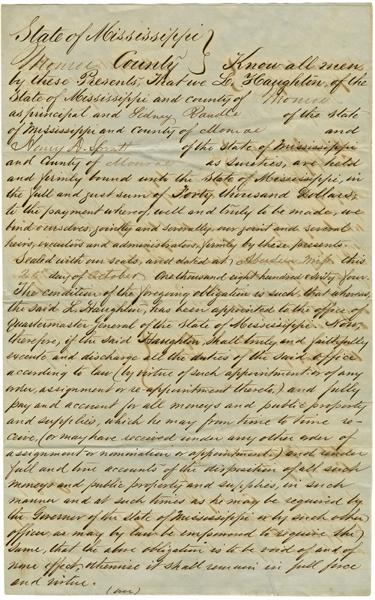 State of Mississippi }
Monroe County } Know all men
by these Presents, That we L. Haughton, of the
State of Mississippi and county of Monroe
as principal and Sidney of the State
of Mississippi and county of Monroe and
Henry D. Spratt of the State of Mississippi
and County of Monroe as sureties, are held
and firmly bound unto the State of Mississippi, in
the full and just sum of Forty thousand Dollars,
to the payment whereof, well and truly to be made, we
bind ourselves jointly and severally, our joint and several
heirs, executors and administrators, firmly by these presents.
Sealed with our seals, and dated at Aberdeen Miss. this
day of October One thousand eight hundred sixty four.
The condition of the foregoing obligation is such, that whereas,
the said L. Haughton, has been appointed to the office of
Quartermaster General of the State of Mississippi. Now,
therefore, if the said Haughton, shall truly and faithfully
execute and discharge all the duties of the said office
according to law (by virtue of such appointment or of any
order, assignment or re-appointment thereto) and fully
pay and account for all moneys and public property
and supplies, which he may from time to time re-
ceive, (or may have received under any other order of
assignment or nomination or appointment) and render
full and true accounts of the disposition of all such
moneys and public property and supplies, in such
manner and at such times as he may be required by
the Governor of the State of Mississippi or by such other
officer, as may by law be empowered to require the
same, that the above obligation is to be void and of
none effect, otherwise it shall remain in full force
and virtue.
(over)